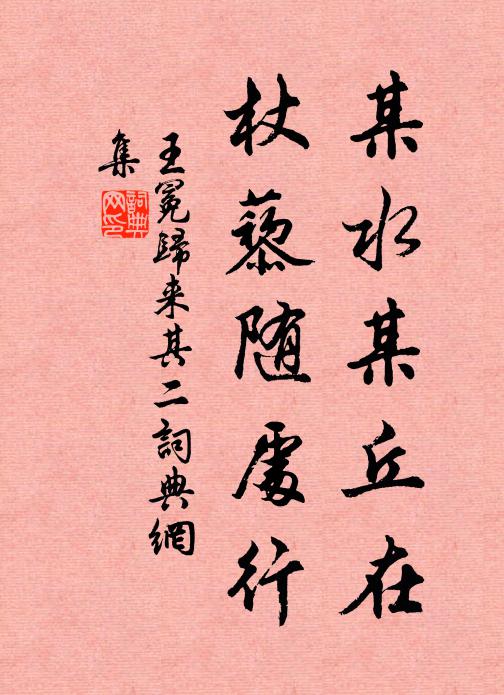 某水某丘在
杖藜随處行
王冕歸来其二詞典網
集
詞典
网印